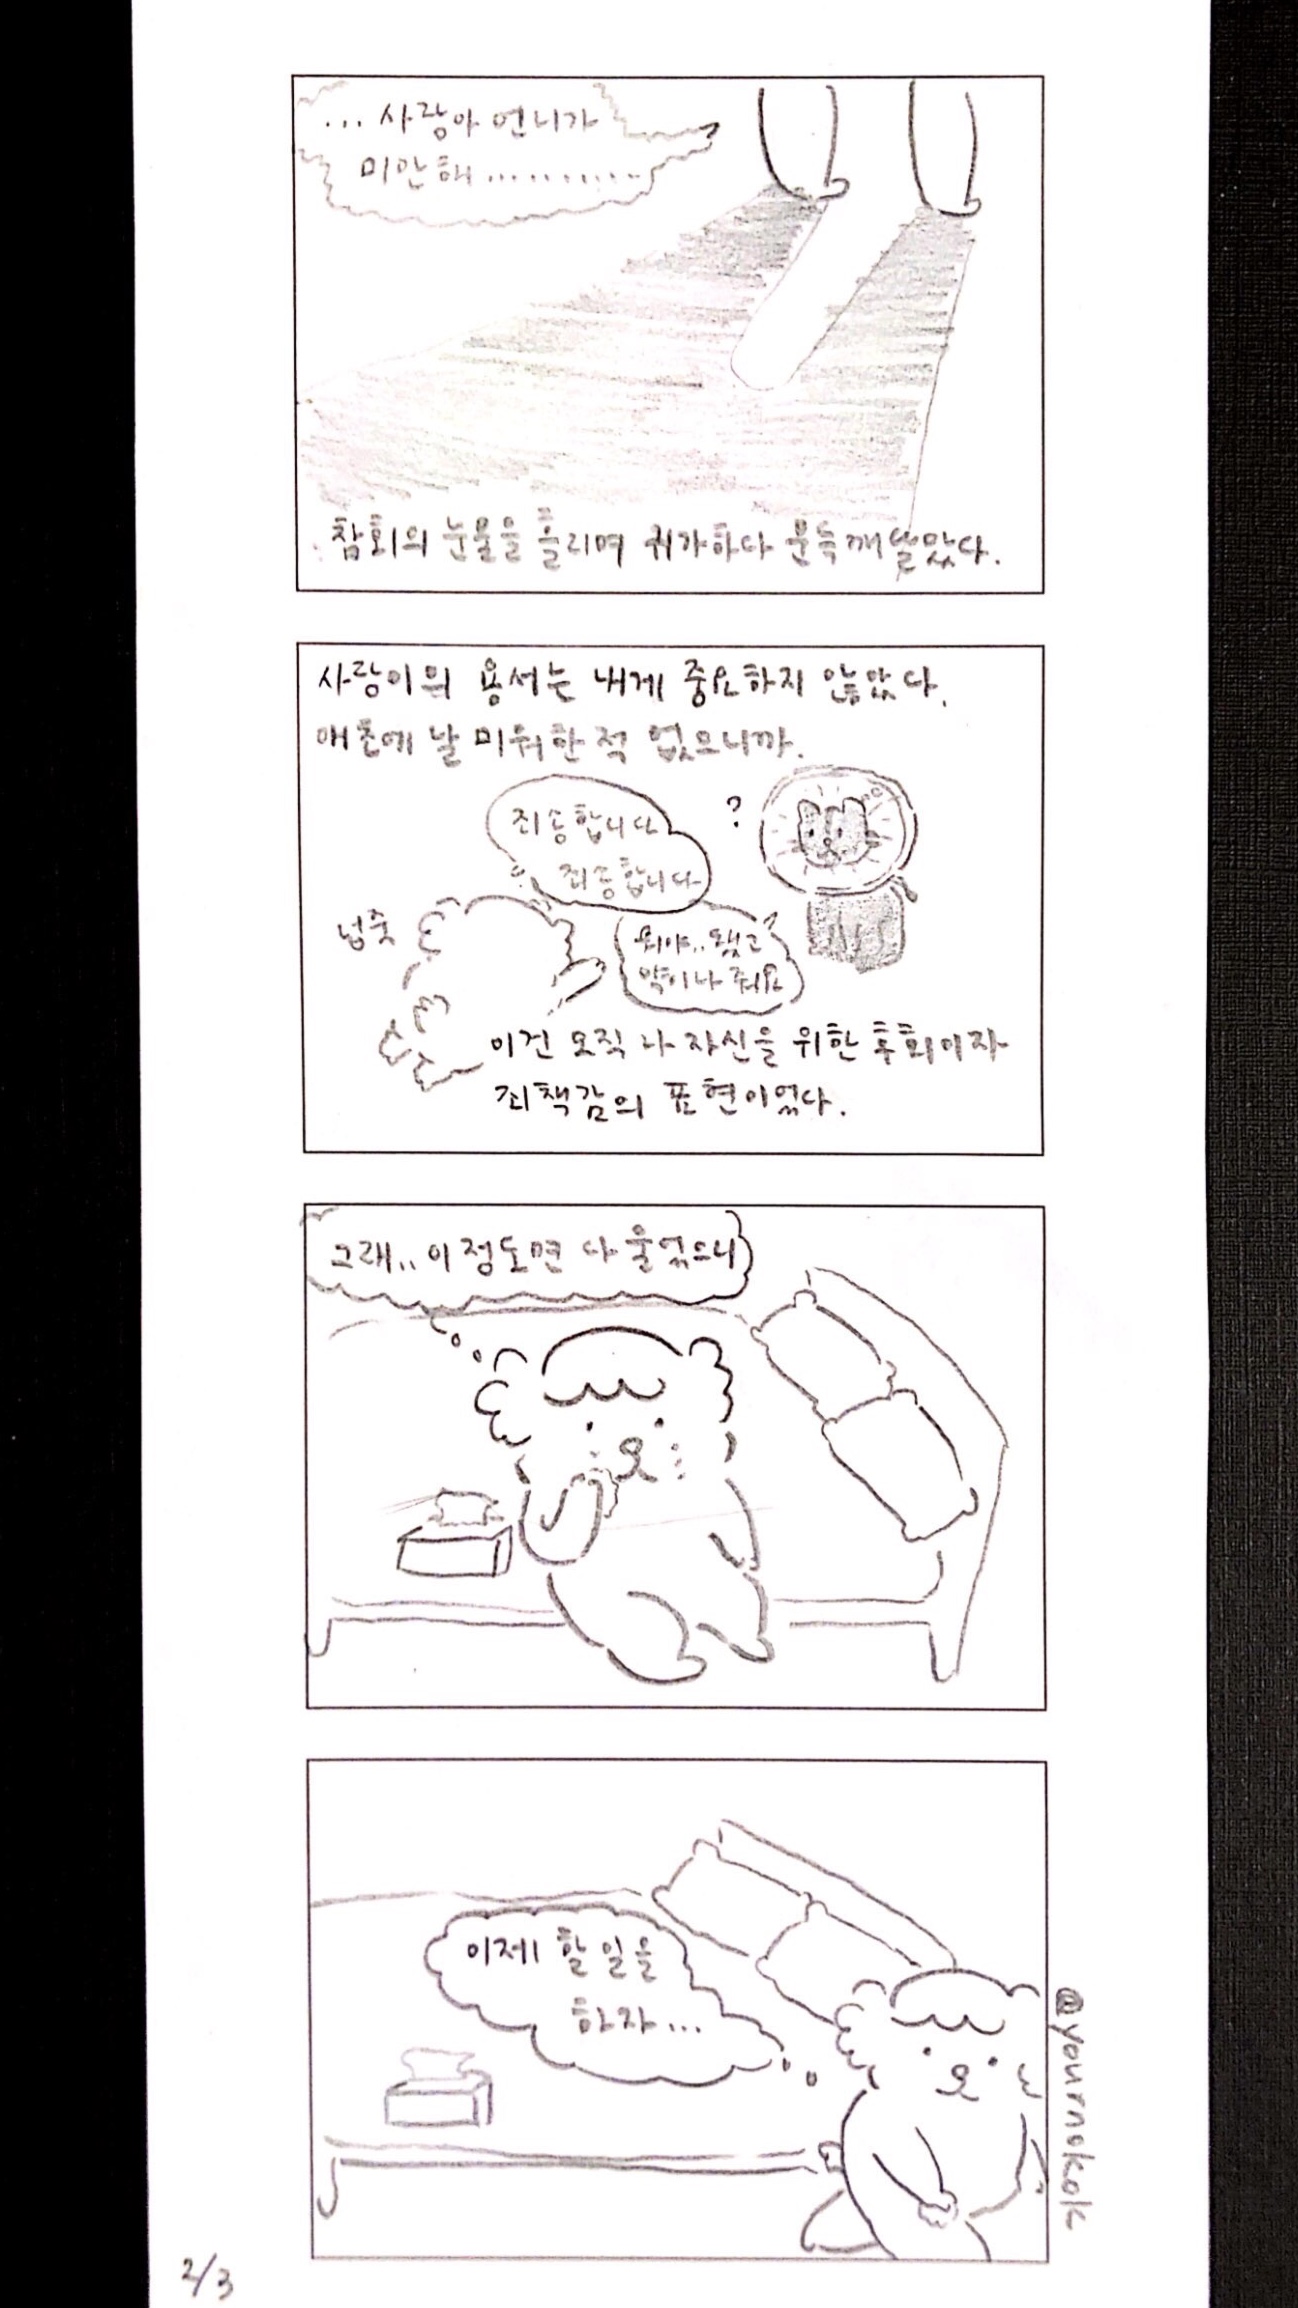 ... 사랑아 언니가
미안해 ...........
참회의 눈물을 흘리며 귀가하다 문득 깨달았다.
사랑이의 용서는 내게 중요하지 않았다.
애초에 날 미워한 적 없으니까.
?
죄송합니다
죄송합니다
넙죽
뭐야.. 됐고
약이나 줘요
이건 오직 나 자신을 위한 후회이자
죄책감의 표현이었다.
그래.. 이 정도면 다 울었으니
이제 할 일을
하자...
@yournokok
2/3